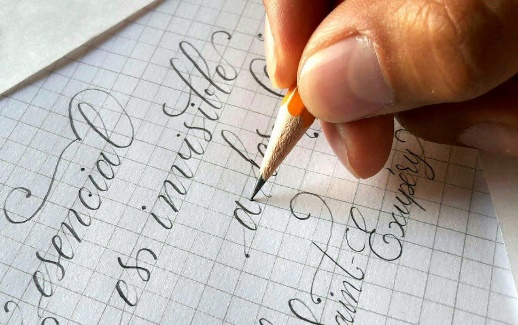 esencial
es invisible
a los
Saint-Exupéry